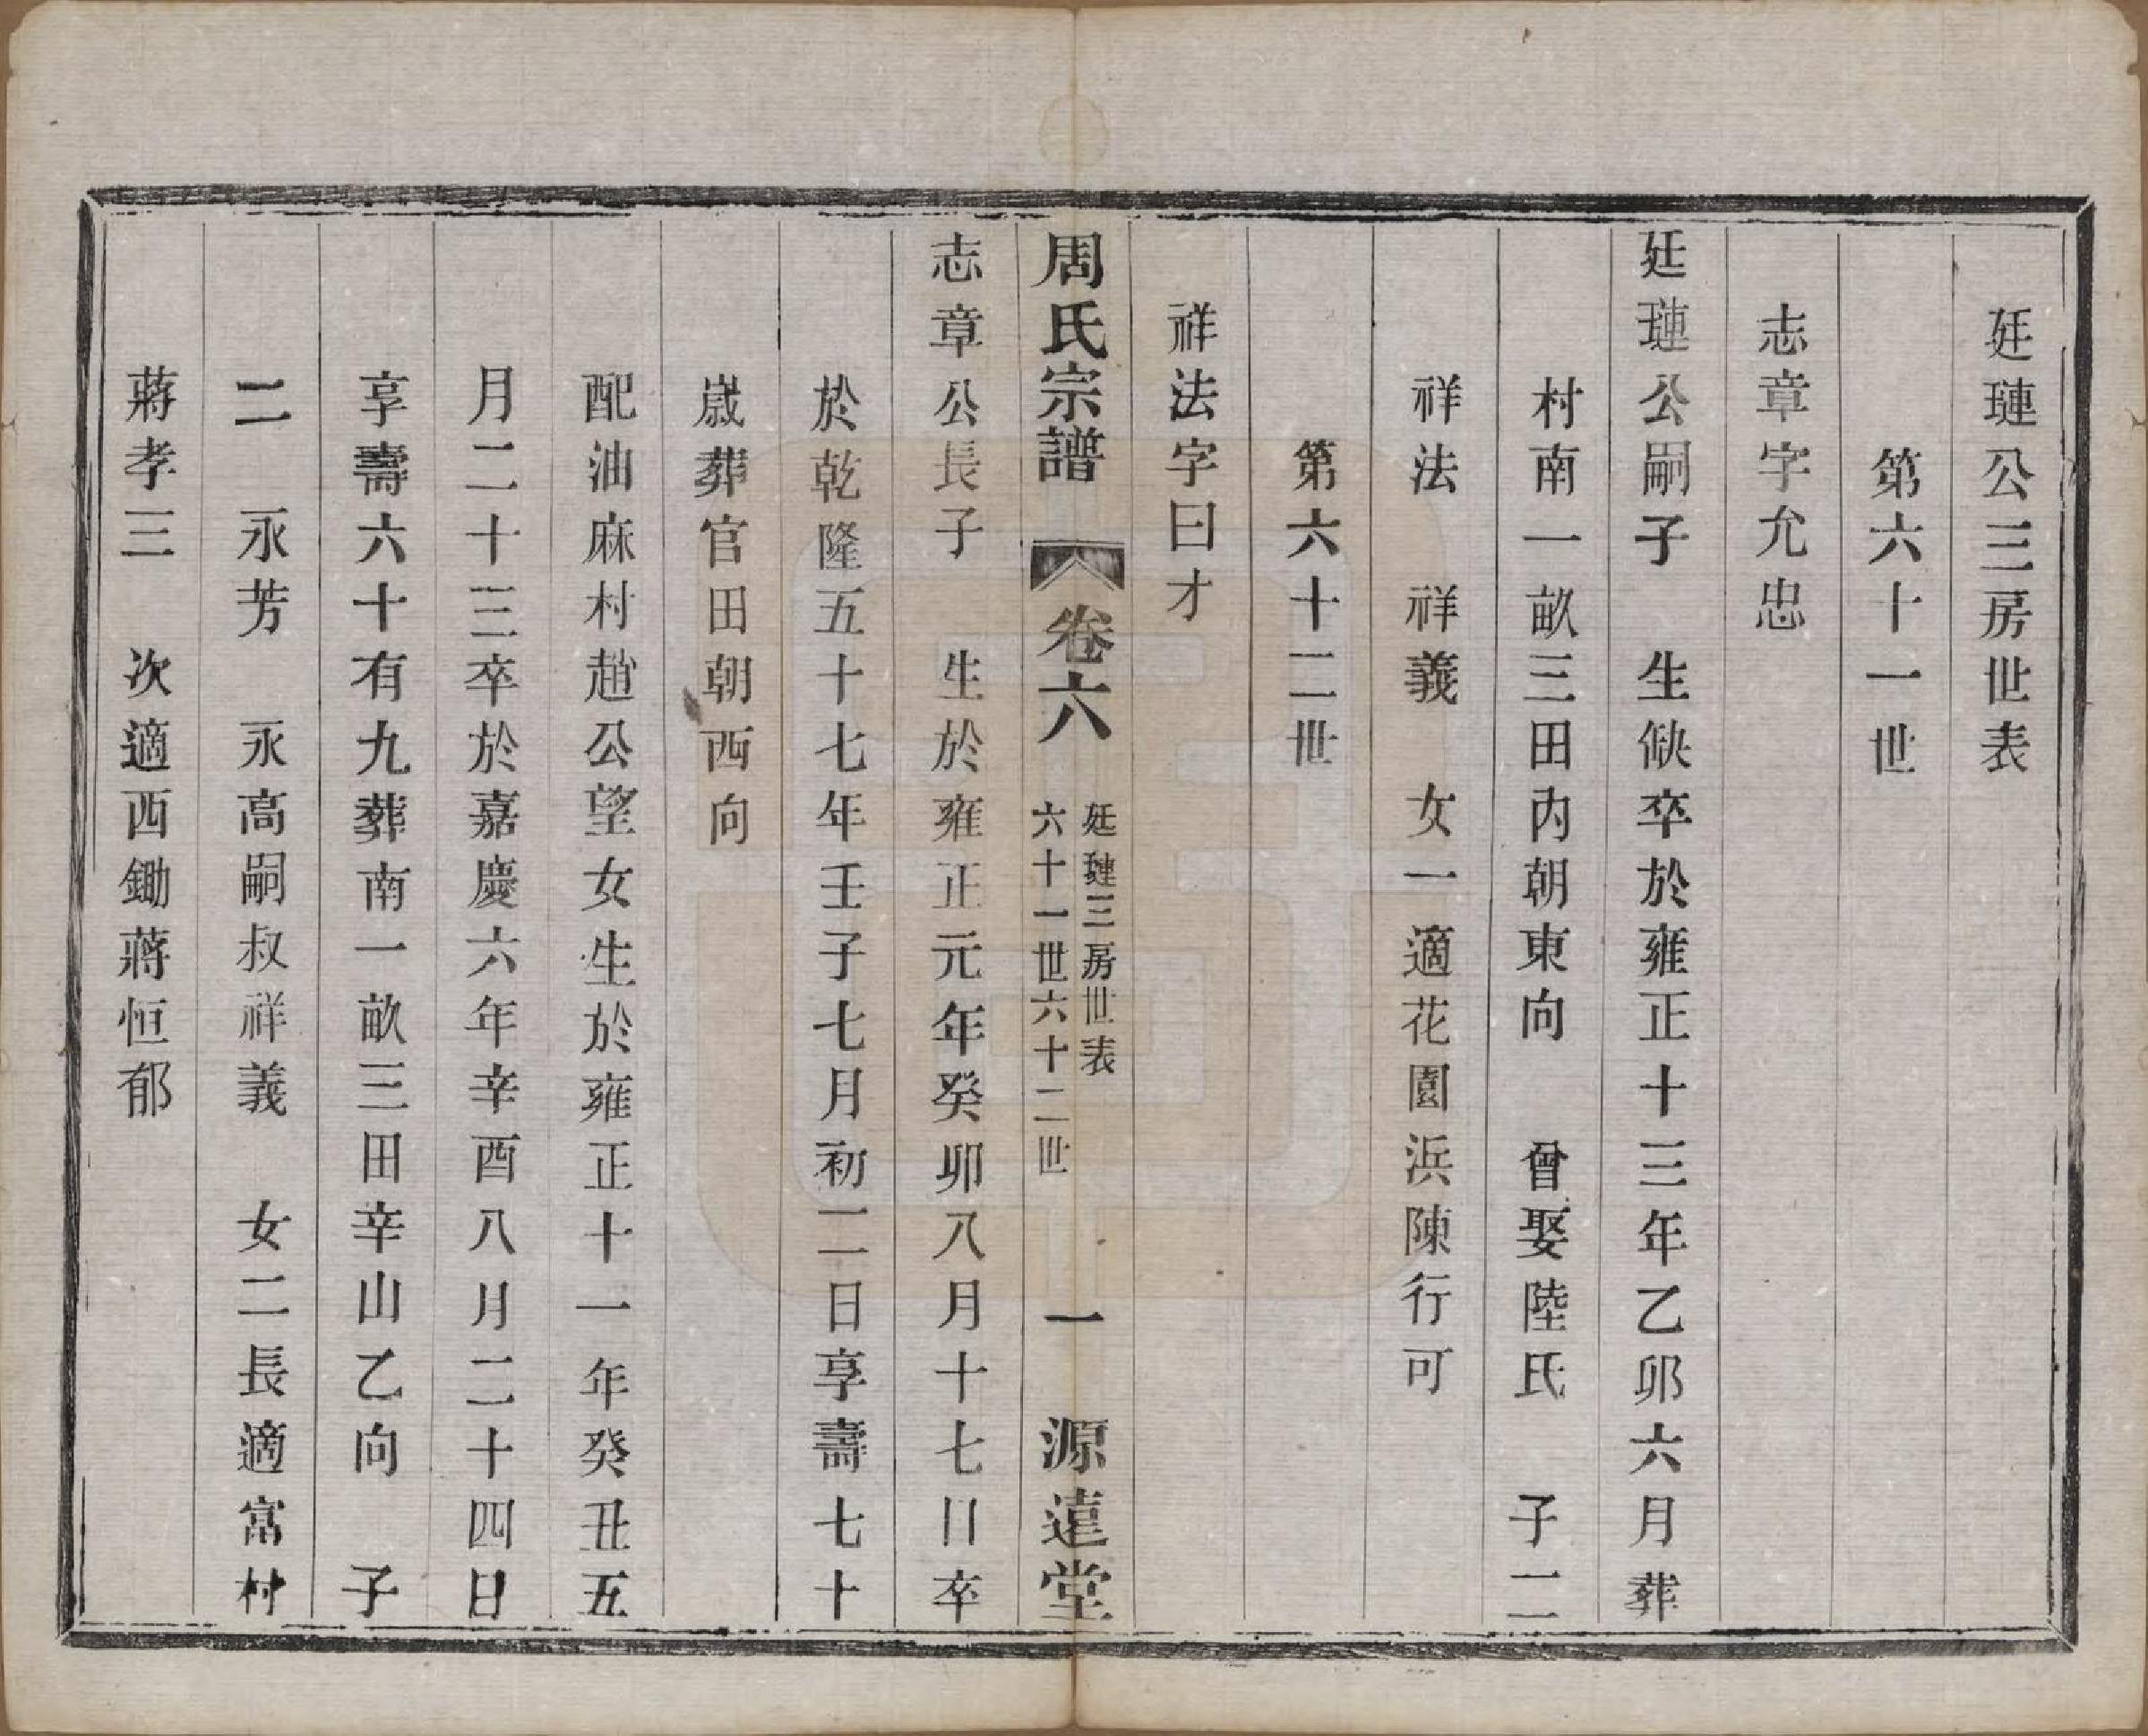 廷璉公三房世表
第六十一世
志章字允忠
廷璉公嗣子　生缺卒於雍正十三年乙卯六月葬
村南一畝三田内朝東向　曾娶陸氏　子二
祥法　祥義　女一適花園浜陳行可
第六十二世
祥法字曰才
周氏宗譜　卷六　廷璉三房世表
六十一世六十二世　一　源遠堂
志章公長子　生於雍正元年癸卯八月十七日卒
於乾隆五十七年壬子七月初二日享壽七十
歲葬官田朝西向
配油麻村趙公望女生於雍正十一年癸丑五
月二十三卒於嘉慶六年辛酉八月二十四日
享壽六十有九葬南一畝三田辛山乙向　子
二　永芳　永高嗣叔祥義　女二長適富村
蔣孝三　次適西鋤蔣恒郁